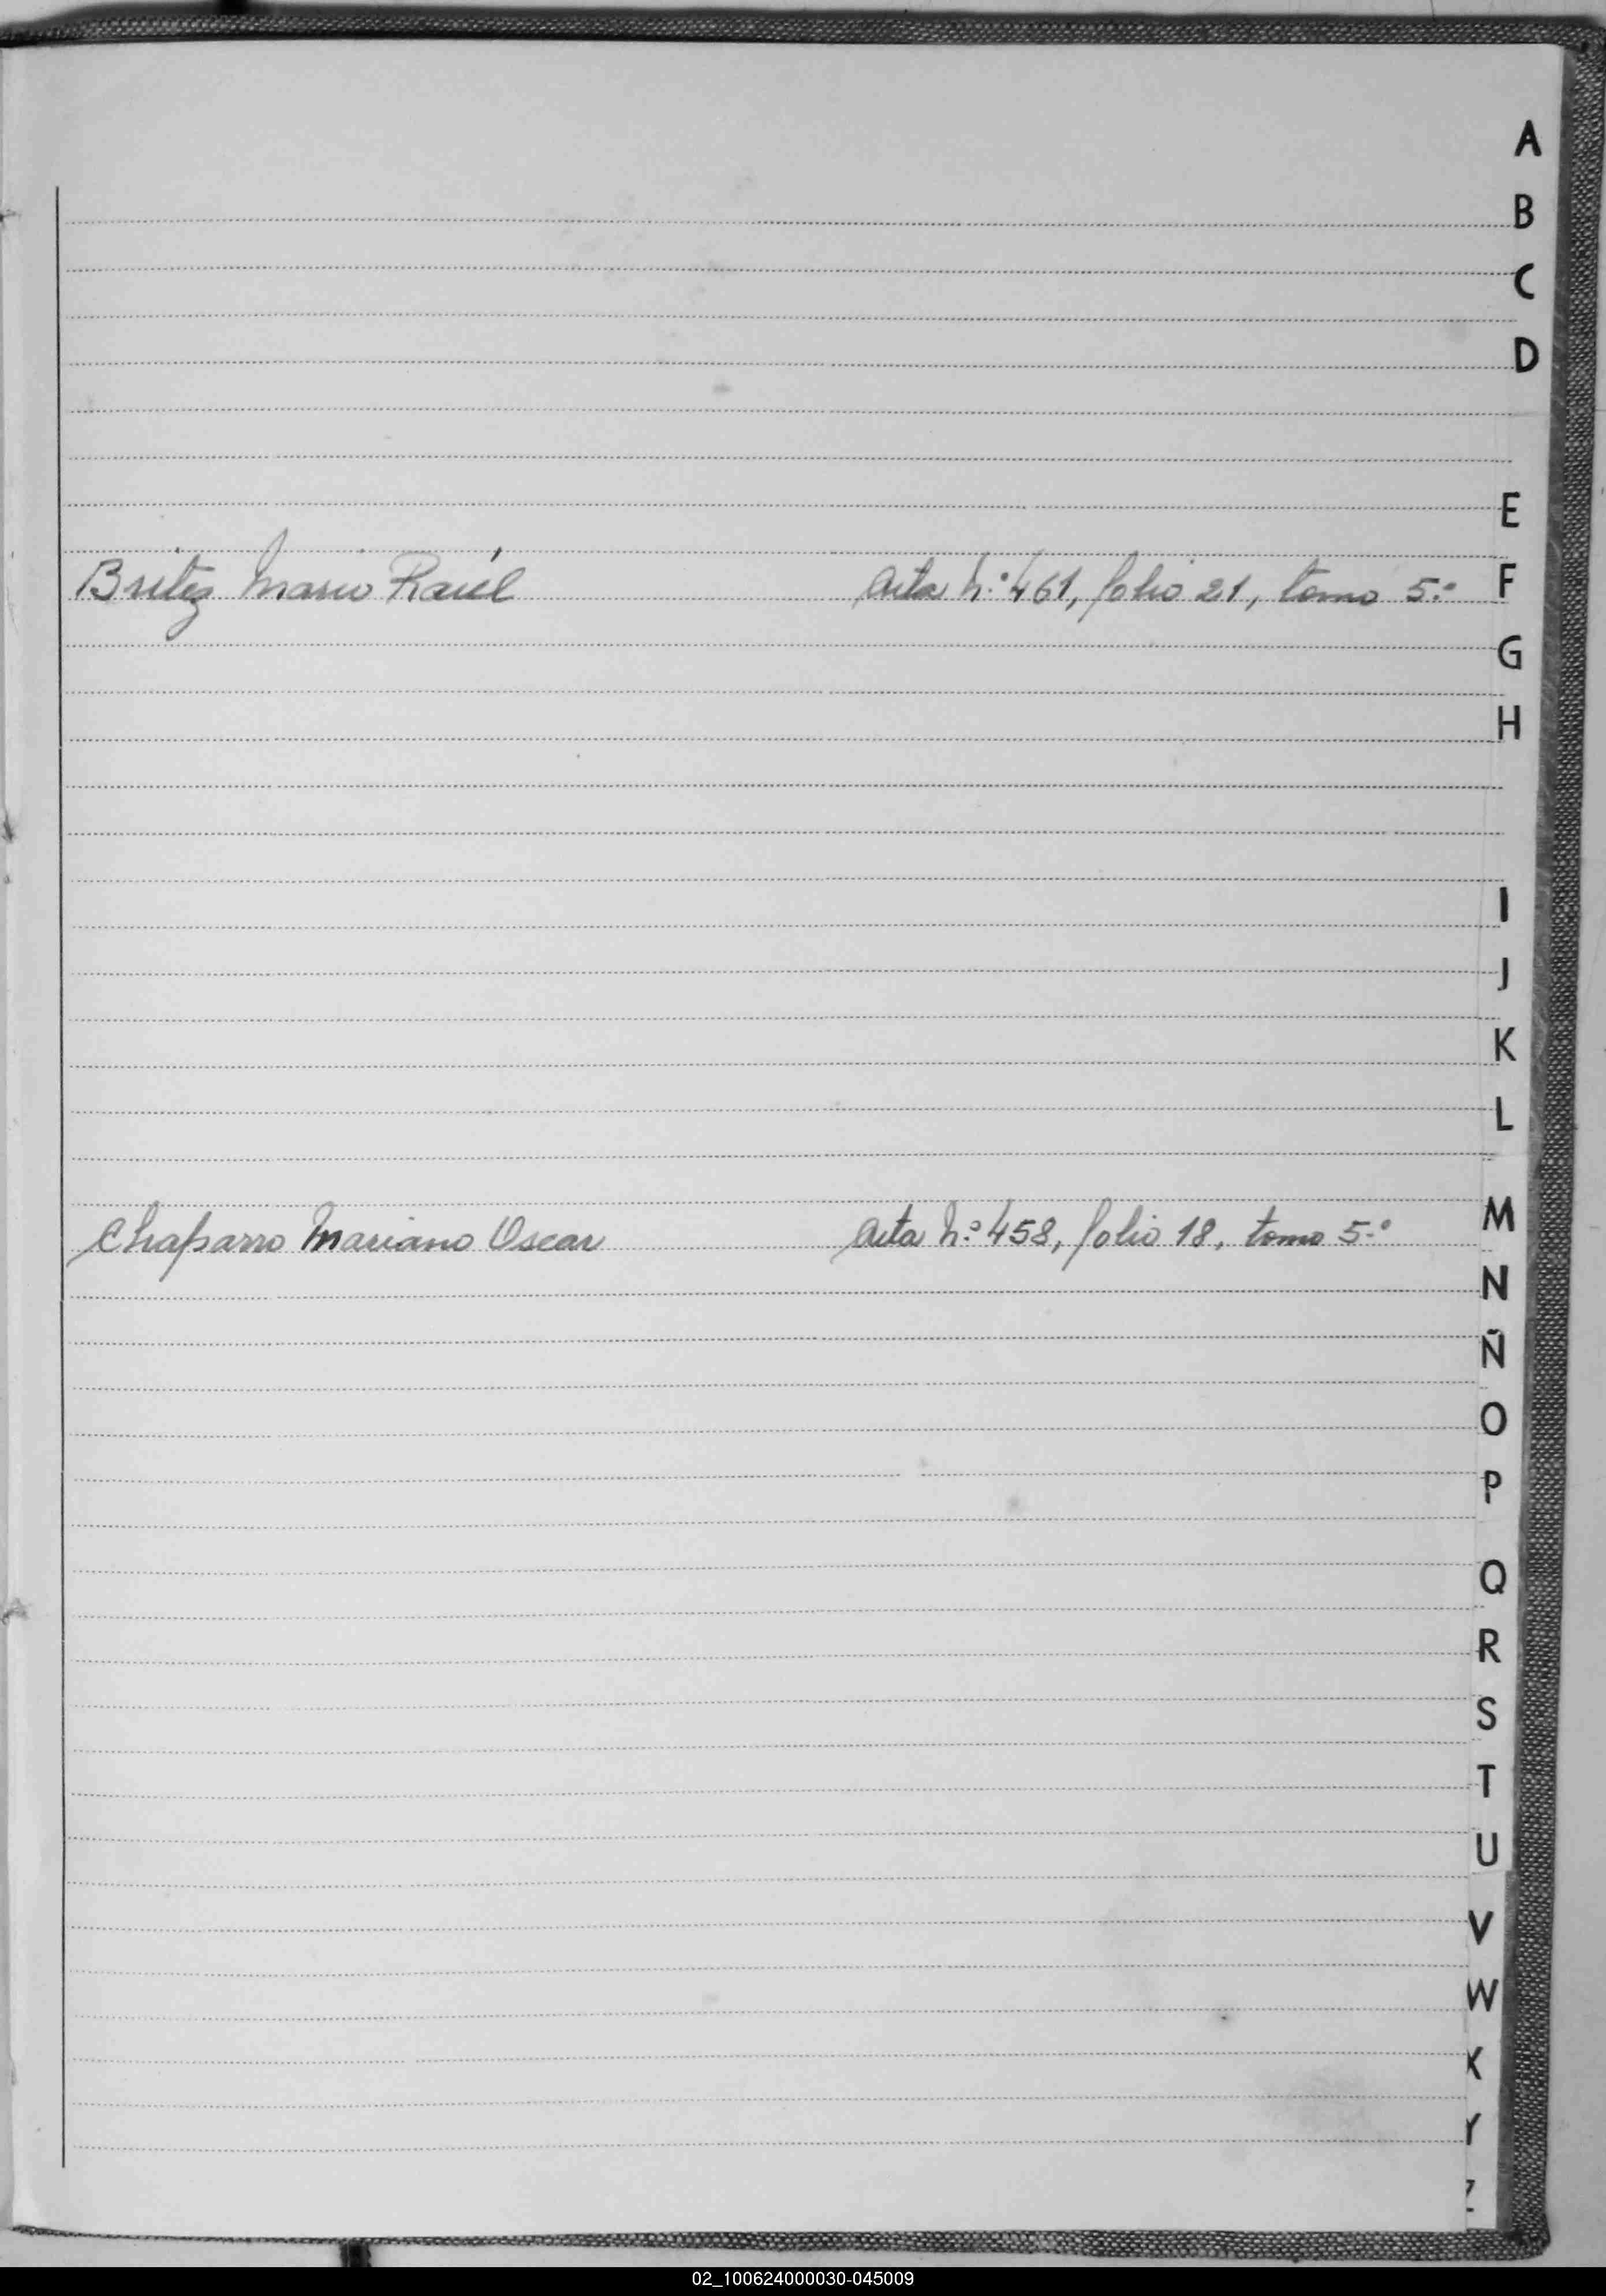 A
B
C
D
E
Britez Mario Raúl acta N.º 461, folio 21, tomo 5.º
F
G
H
I
J
K
L
Chaparro Mariano Oscar acta N.º 458, folio 18, tomo 5.º
M
N
Ñ
O
P
Q
R
S
T
U
V
W
X
Y
Z
02_100624000030-045009